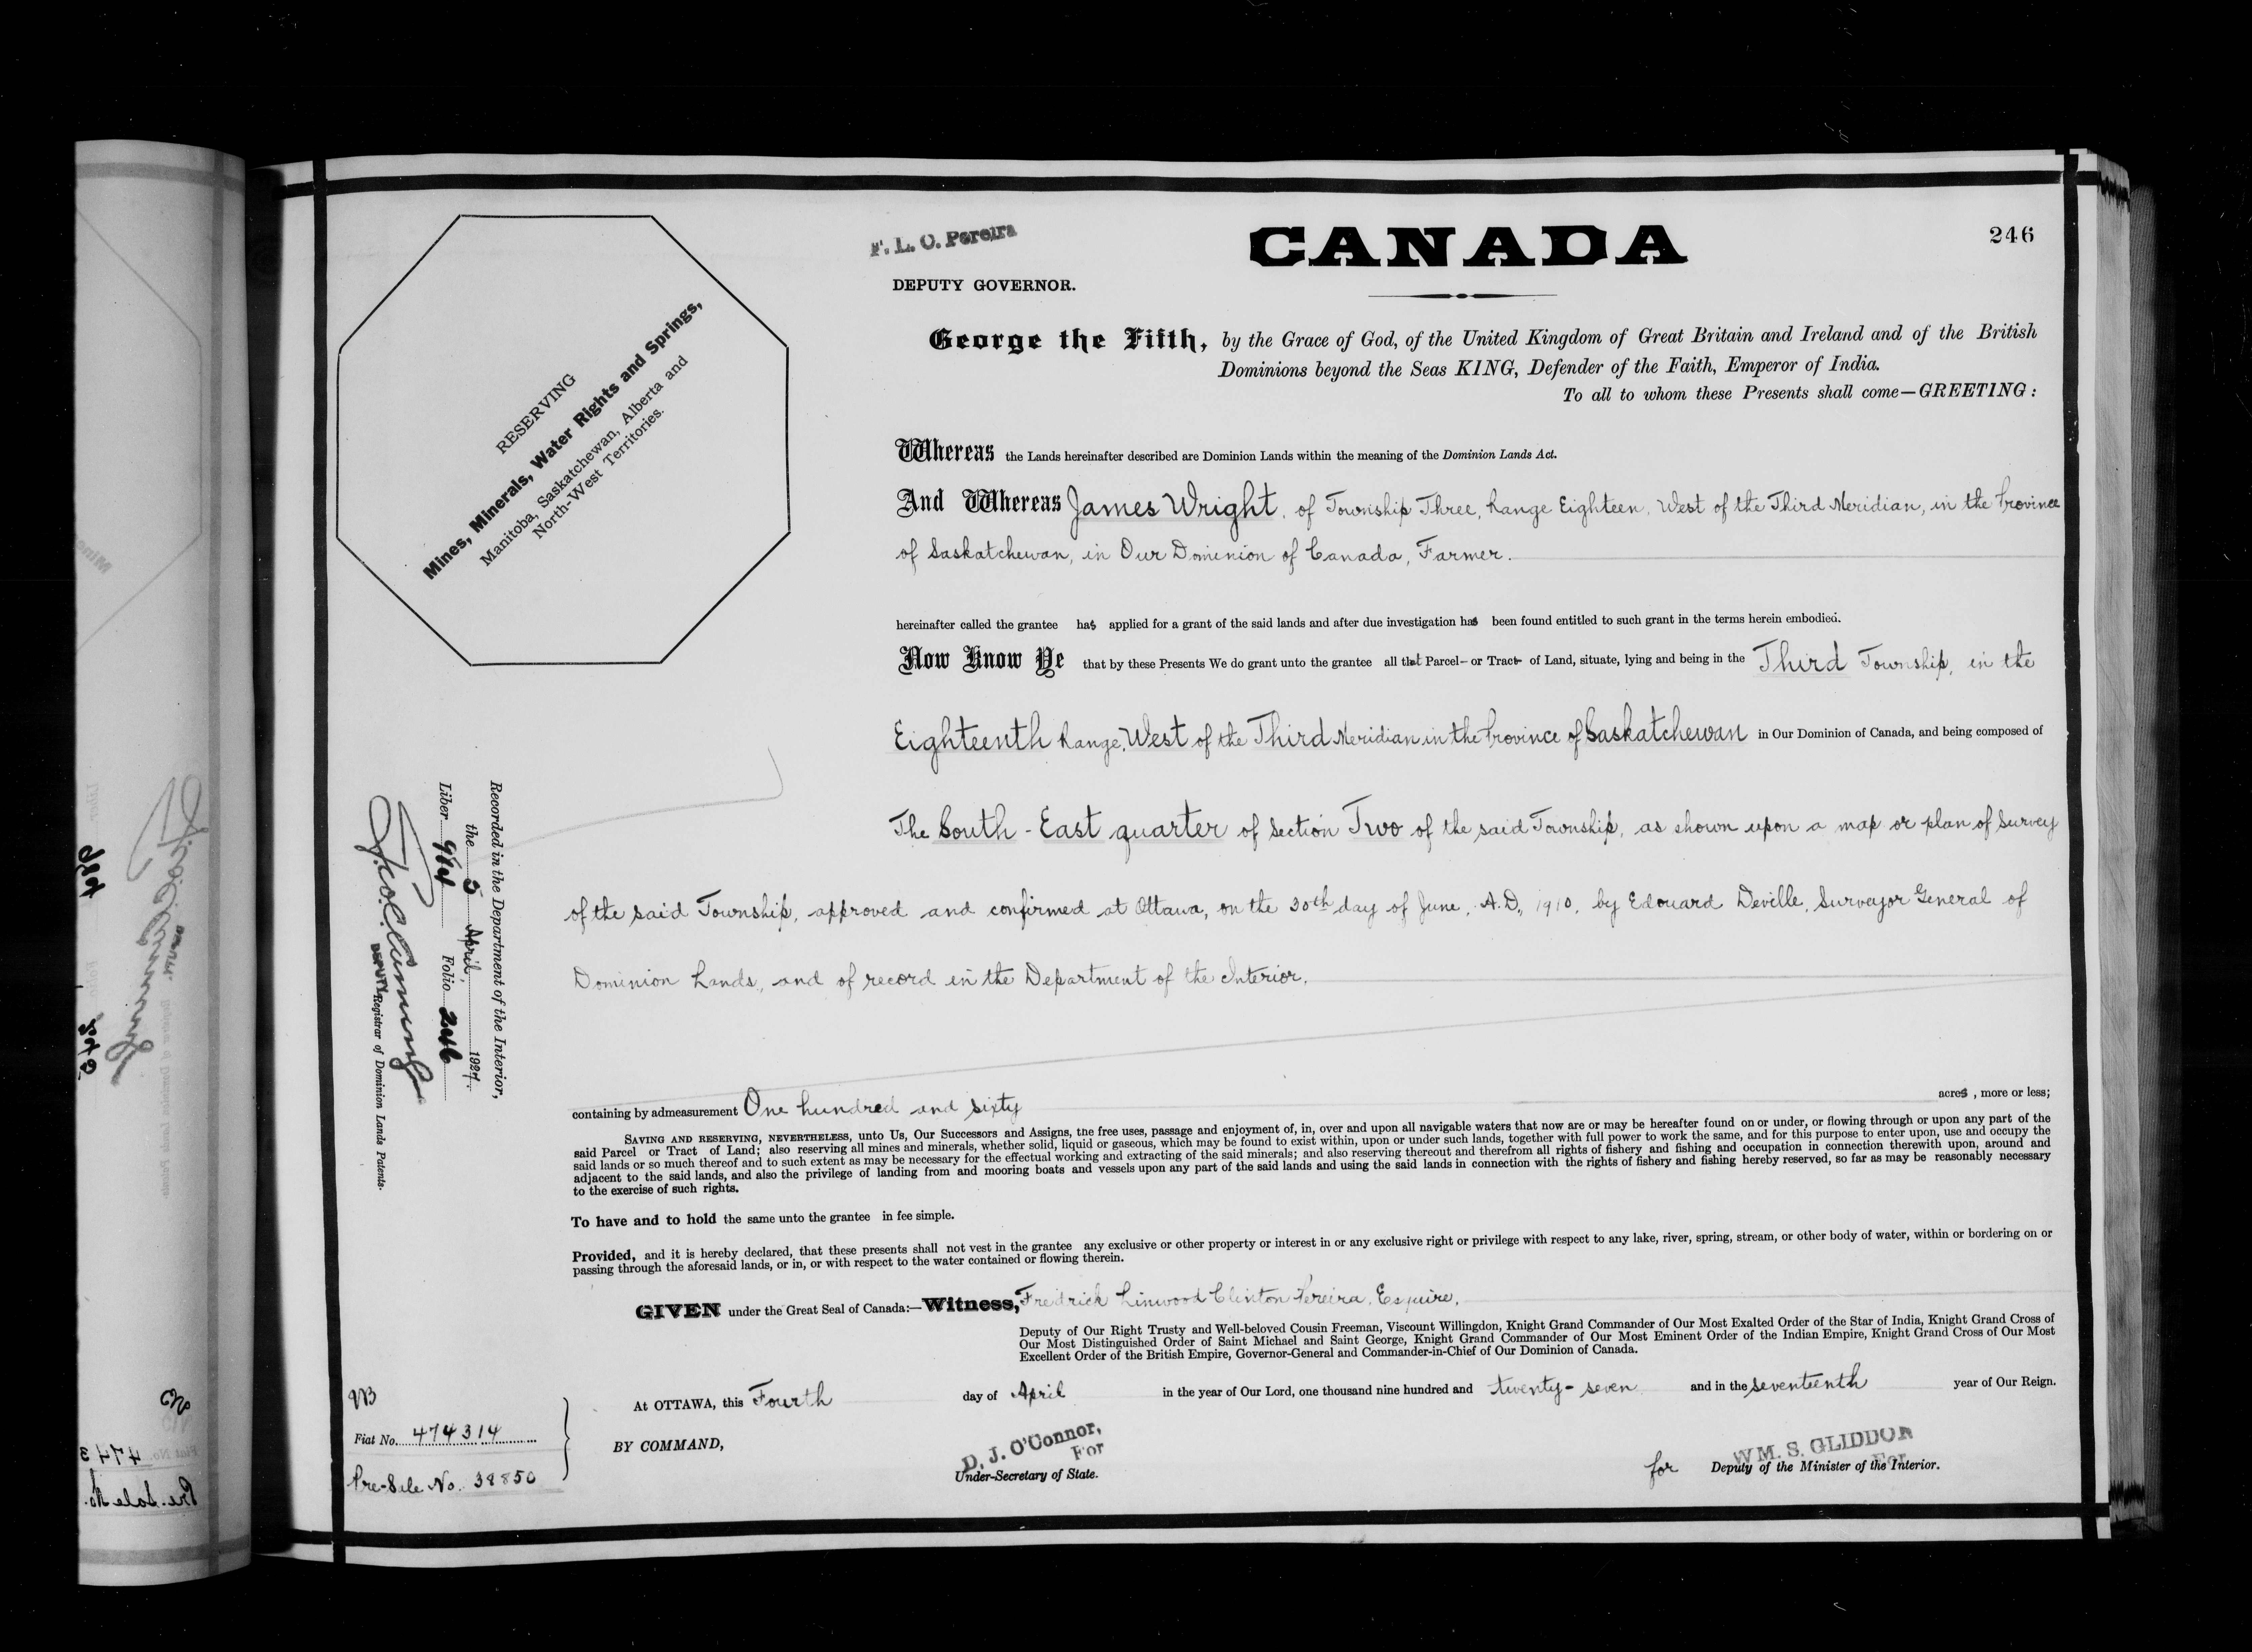 F. L. C. Pereira
DEPUTY GOVERNOR.
CANADA
246
RESERVING
Mines, Minerals, Water Rights and Springs,
Manitoba, Saskatchewan, Alberta and
North-West Territories.
George the Fifth, by the Grace of God, of the United Kingdom of Great Britain and Ireland and of the British
Dominions beyond the Seas KING, Defender of the Faith, Emperor of India.
To all to whom these Presents shall come—GREETING:
Whereas the Lands hereinafter described are Dominion Lands within the meaning of the Dominion Lands Act.
And Whereas James Wright, of Township Three, Range Eighteen, West of the Third Meridian, in the Province
of Saskatchewan, in Our Dominion of Canada, Farmer.
hereinafter called the grantee has applied for a grant of the said lands and after due investigation has been found entitled to such grant in the terms herein embodied.
Now Know Ye that by these Presents We do grant unto the grantee all that Parcel or Tract of Land, situate, lying and being in the Third Township, in the
Eighteenth Range, West of the Third Meridian in the Province of Saskatchewan in Our Dominion of Canada, and being composed of
The South-East quarter of Section Two of the said Township, as shown upon a map or plan of survey
of the said Township, approved and confirmed at Ottawa, on the 30th day of June, A.D., 1910, by Edouard Deville, Surveyor General of
Dominion Lands, and of record in the Department of the Interior.
Recorded in the Department of the Interior,
the 5 April, 1927.
Liber Folio 246
DEPUTY Registrar of Dominion Lands Patents.
containing by admeasurement One hundred and sixty acres, more or less;
SAVING AND RESERVING, NEVERTHELESS, unto Us, Our Successors and Assigns, the free uses, passage and enjoyment of, in, over and upon all navigable waters that now are or may be hereafter found on or under, or flowing through or upon any part of the
said Parcel or Tract of Land; also reserving all mines and minerals, whether solid, liquid or gaseous, which may be found to exist within, upon or under such lands, together with full power to work the same, and for this purpose to enter upon, use and occupy the
said lands or so much thereof and to such extent as may be necessary for the effectual working and extracting of the said minerals; and also reserving thereout and therefrom all rights of fishery and fishing and occupation in connection therewith upon, around and
adjacent to the said lands, and also the privilege of landing from and mooring boats and vessels upon any part of the said lands and using the said lands in connection with the rights of fishery and fishing hereby reserved, so far as may be reasonably necessary
to the exercise of such rights.
To have and to hold the same unto the grantee in fee simple.
Provided, and it is hereby declared, that these presents shall not vest in the grantee any exclusive or other property or interest in or any exclusive right or privilege with respect to any lake, river, spring, stream, or other body of water, within or bordering on or
passing through the aforesaid lands, or in, or with respect to the water contained or flowing therein.
GIVEN under the Great Seal of Canada:—Witness, Fredrick Linwood Clinton Pereira, Esquire,
Deputy of Our Right Trusty and Well-beloved Cousin Freeman, Viscount Willingdon, Knight Grand Commander of Our Most Exalted Order of the Star of India, Knight Grand Cross of
Our Most Distinguished Order of Saint Michael and Saint George, Knight Grand Commander of Our Most Eminent Order of the Indian Empire, Knight Grand Cross of Our Most
Excellent Order of the British Empire, Governor-General and Commander-in-Chief of Our Dominion of Canada.
At OTTAWA, this Fourth day of April in the year of Our Lord, one thousand nine hundred and twenty-seven and in the seventeenth year of Our Reign.
Fiat No. 474314
Pre-Sale No. 38850
BY COMMAND,
D. J. O'Connor,
For
Under-Secretary of State.
WM. S. GLIDDON
for Deputy of the Minister of the Interior.